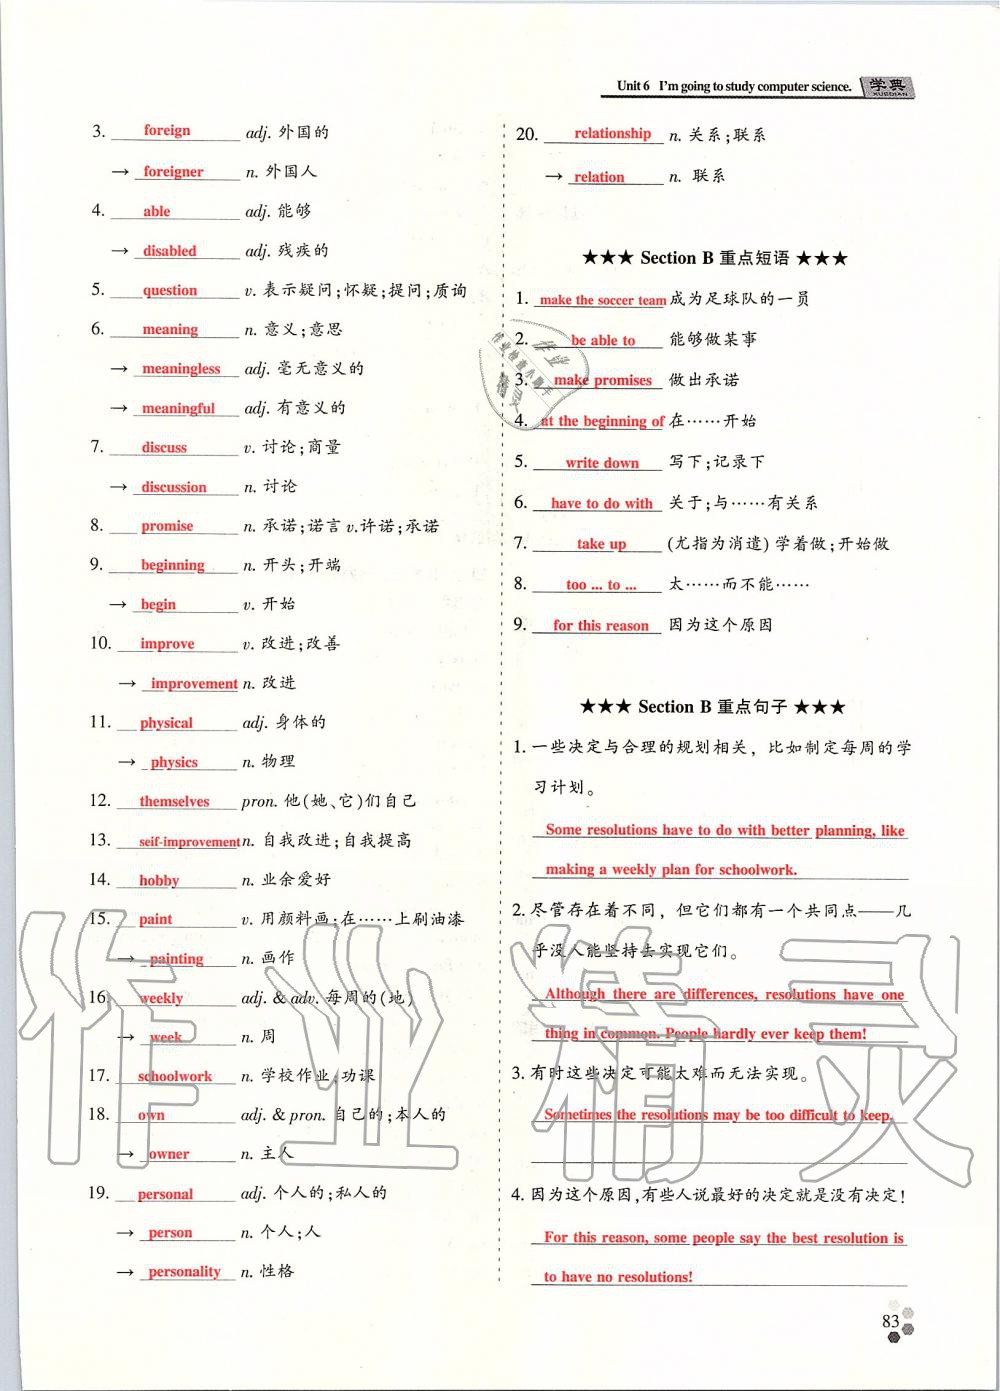 Unit 6 I'm going to study computer science. 学典
XUEDIAN
3. foreign adj. 外国的
→ foreigner n. 外国人
4. able adj. 能够
→ disabled adj. 残疾的
5. question v. 表示疑问;怀疑;提问;质询
6. meaning n. 意义;意思
→ meaningless adj. 毫无意义的
→ meaningful adj. 有意义的
7. discuss v. 讨论;商量
→ discussion n. 讨论
8. promise n. 承诺;诺言 v.许诺;承诺
9. beginning n. 开头;开端
→ begin v. 开始
10. improve v. 改进;改善
→ improvement n. 改进
11. physical adj. 身体的
→ physics n. 物理
12. themselves pron. 他(她、它)们自己
13. seif-improvement n. 自我改进;自我提高
14. hobby n. 业余爱好
15. paint v. 用颜料画;在……上刷油漆
→ painting n. 画作
16. weekly adj. & adv. 每周的(地)
→ week n. 周
17. schoolwork n. 学校作业;功课
18. own adj. & pron. 自己的;本人的
→ owner n. 主人
19. personal adj. 个人的;私人的
→ person n. 个人;人
→ personality n. 性格
20. relationship n. 关系;联系
→ relation n. 联系
★★★ Section B 重点短语 ★★★
1. make the soccer team 成为足球队的一员
2. be able to 能够做某事
3. make promises 做出承诺
4. at the beginning of 在……开始
5. write down 写下;记录下
6. have to do with 关于;与……有关系
7. take up (尤指为消遣)学着做;开始做
8. too ... to ... 太……而不能……
9. for this reason 因为这个原因
★★★ Section B 重点句子 ★★★
1. 一些决定与合理的规划相关，比如制定每周的学
习计划。
Some resolutions have to do with better planning, like
making a weekly plan for schoolwork.
2. 尽管存在着不同，但它们都有一个共同点——几
乎没人能坚持去实现它们。
Although there are differences, resolutions have one
thing in common. People hardly ever keep them!
3. 有时这些决定可能太难而无法实现。
Sometimes the resolutions may be too difficult to keep.
4. 因为这个原因,有些人说最好的决定就是没有决定!
For this reason, some people say the best resolution is
to have no resolutions!
83
作业精灵